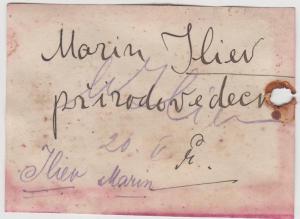 Marin Iliev
přírodovědecká
20. 6
Iliev Marin